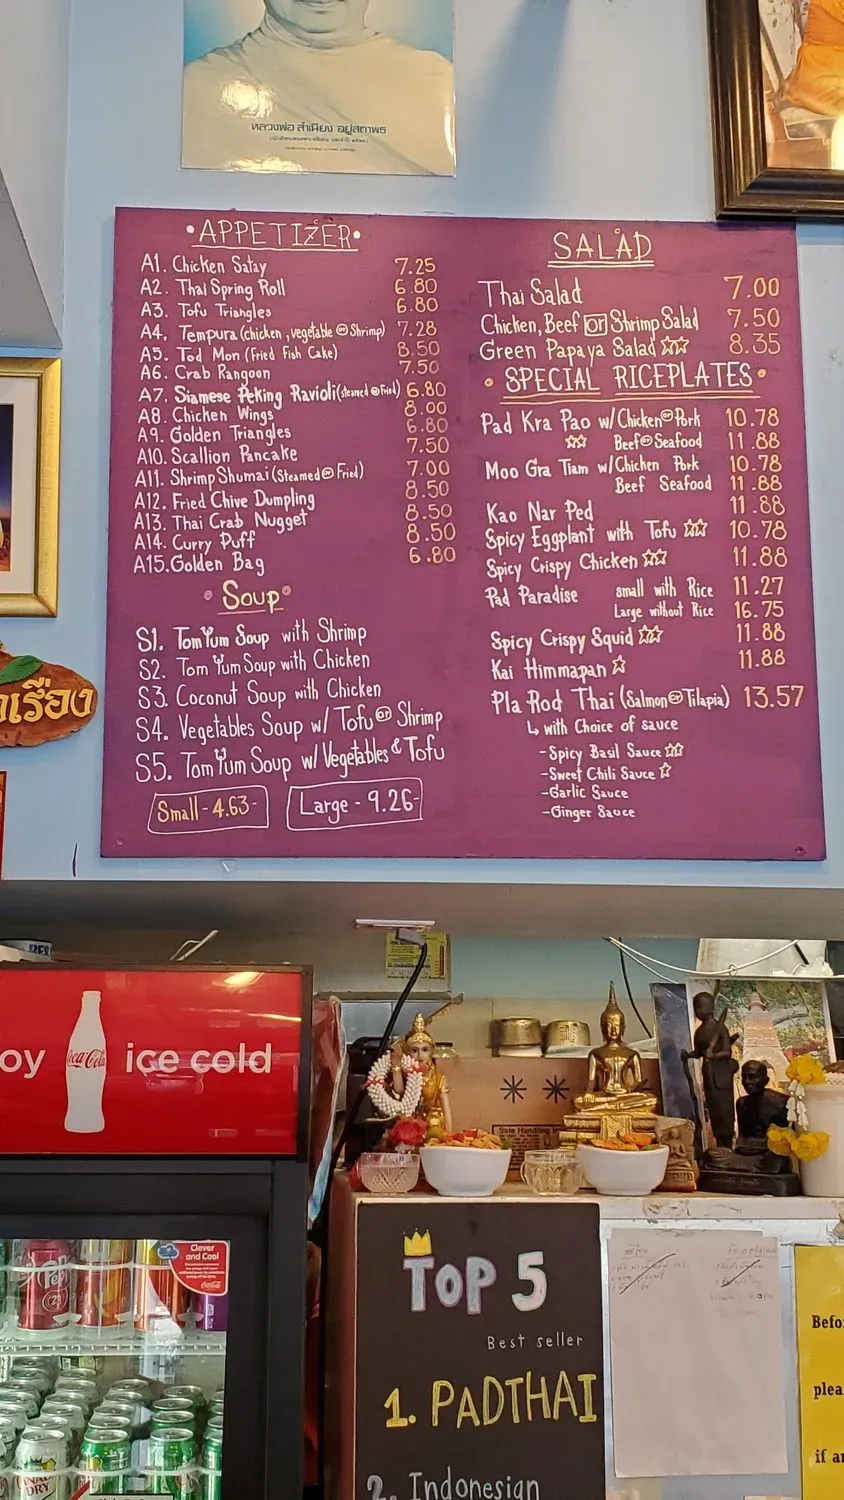 หลวงพ่อ สำเนียง อยู่สถาพร
•APPETIZER•
A1. Chicken Satay 7.25
A2. Thai Spring Roll 6.80
A3. Tofu Triangles 6.80
A4. Tempura (chicken, vegetable or Shrimp) 7.28
A5. Tod Mon (Fried Fish Cake) 8.50
A6. Crab Rangoon 7.50
A7. Siamese Peking Ravioli (steamed or Fried) 6.80
A8. Chicken Wings 8.00
A9. Golden Triangles 6.80
A10. Scallion Pancake 7.50
A11. Shrimp Shumai (Steamed or Fried) 7.00
A12. Fried Chive Dumpling 8.50
A13. Thai Crab Nugget 8.50
A14. Curry Puff 8.50
A15. Golden Bag 6.80
• Soup •
S1. Tom Yum Soup with Shrimp
S2. Tom Yum Soup with Chicken
S3. Coconut Soup with Chicken
S4. Vegetables Soup w/ Tofu or Shrimp
S5. Tom Yum Soup w/ Vegetables & Tofu
Small - 4.63-
Large - 9.26-
SALAD
Thai Salad 7.00
Chicken, Beef or Shrimp Salad 7.50
Green Papaya Salad ☆☆ 8.35
• SPECIAL RICEPLATES •
Pad Kra Pao w/ Chicken or Pork 10.78
☆☆ Beef or Seafood 11.88
Moo Gra Tiam w/ Chicken Pork 10.78
Beef Seafood 11.88
Kao Nar Ped 11.88
Spicy Eggplant with Tofu ☆☆ 10.78
Spicy Crispy Chicken ☆☆ 11.88
Pad Paradise small with Rice 11.27
Large without Rice 16.75
Spicy Crispy Squid ☆☆ 11.88
Kai Himmapan ☆ 11.88
Pla Rod Thai (Salmon or Tilapia) 13.57
↳ with Choice of sauce
-Spicy Basil Sauce ☆☆
-Sweet Chili Sauce ☆
-Garlic Sauce
-Ginger Sauce
เรือง
oy Coca-Cola ice cold
Clever
and Cool
Coca-Cola
CANADA
DRY
Safe Handling
TOP 5
Best seller
1. PADTHAI
2. Indonesian
Befo
plea
if a